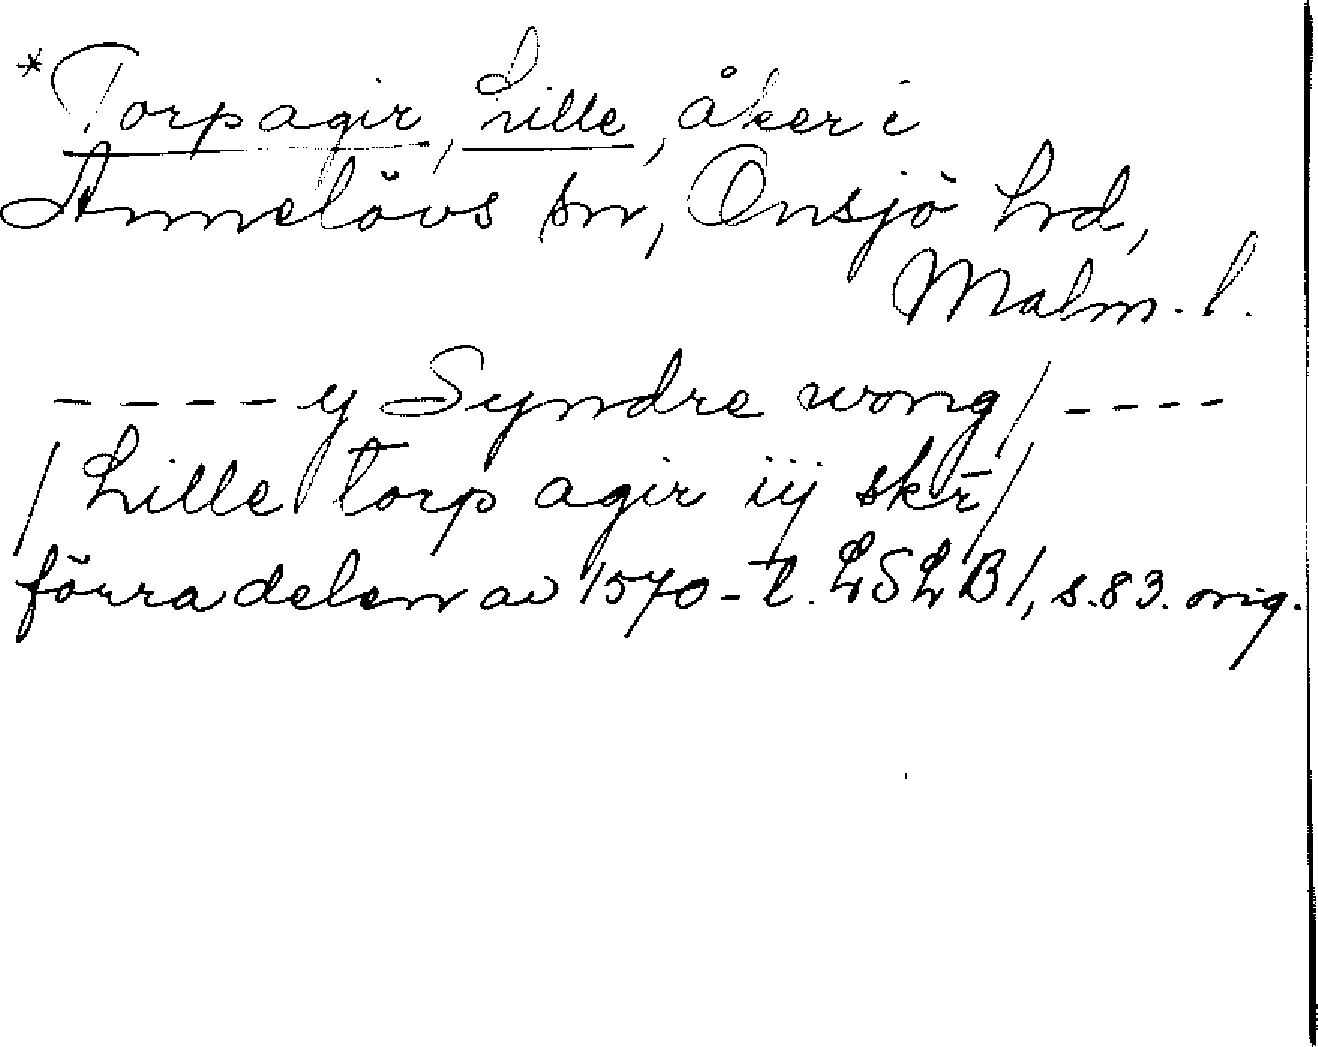 *Torpagir, Lille, åker i
Annelövs sn, Onsjö hrd,
Malm. l.
- - - - y Syndre wong / - - - -
/ Lille torp agir iij skr̄ /
förra delen av 1570-t. LSLB1, s.83. orig.